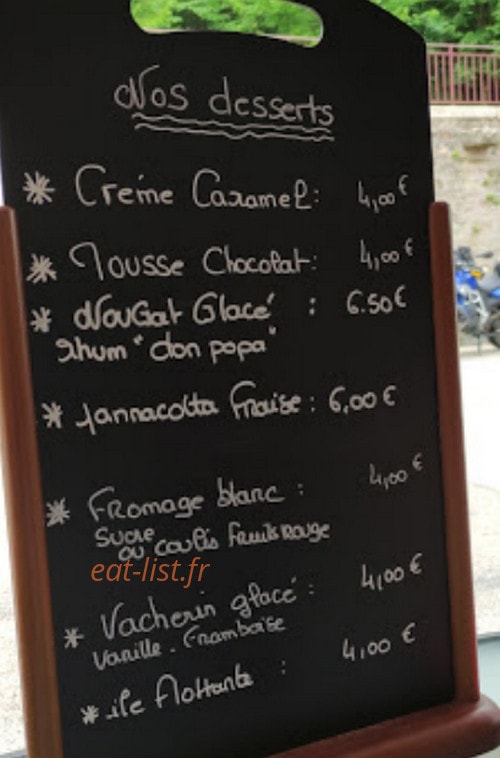 Nos desserts
* Crème Caramel: 4,00€
* Mousse Chocolat: 4,00€
* Nougat Glacé : 6.50€
Rhum "don papa"
* Pannacotta Fraise: 6,00€
* Fromage blanc : 4,00€
Sucre
ou coulis fruits rouge
eat-list.fr
* Vacherin glacé : 4,00€
Vanille - Framboise
* île flottante : 4,00€